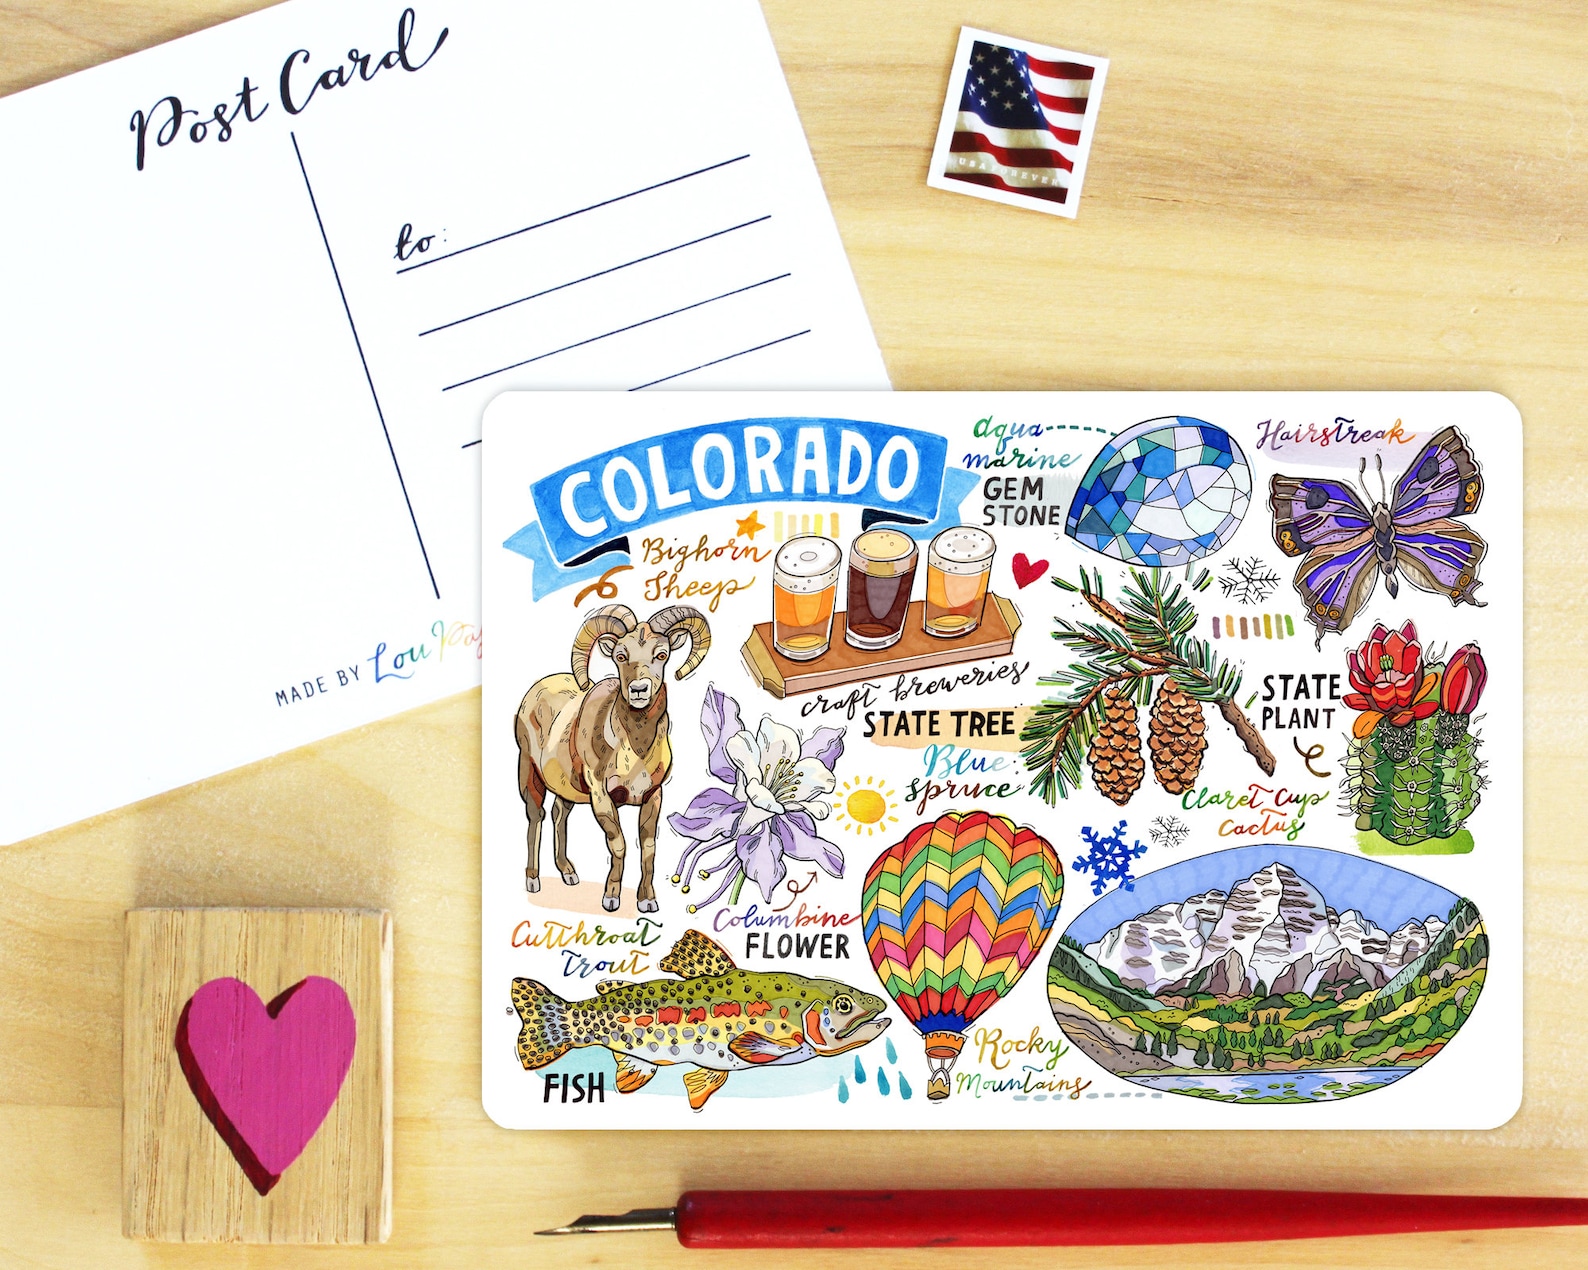 Post Card
to:
MADE BY Lou
USA FOREVER
COLORADO
Bighorn
Sheep
craft breweries
aqua
marine
GEM
STONE
Hairstreak
STATE TREE
Blue
spruce
STATE
PLANT
Claret Cup
Cactus
Columbine
FLOWER
Cutthroat
trout
FISH
Rocky
Mountains